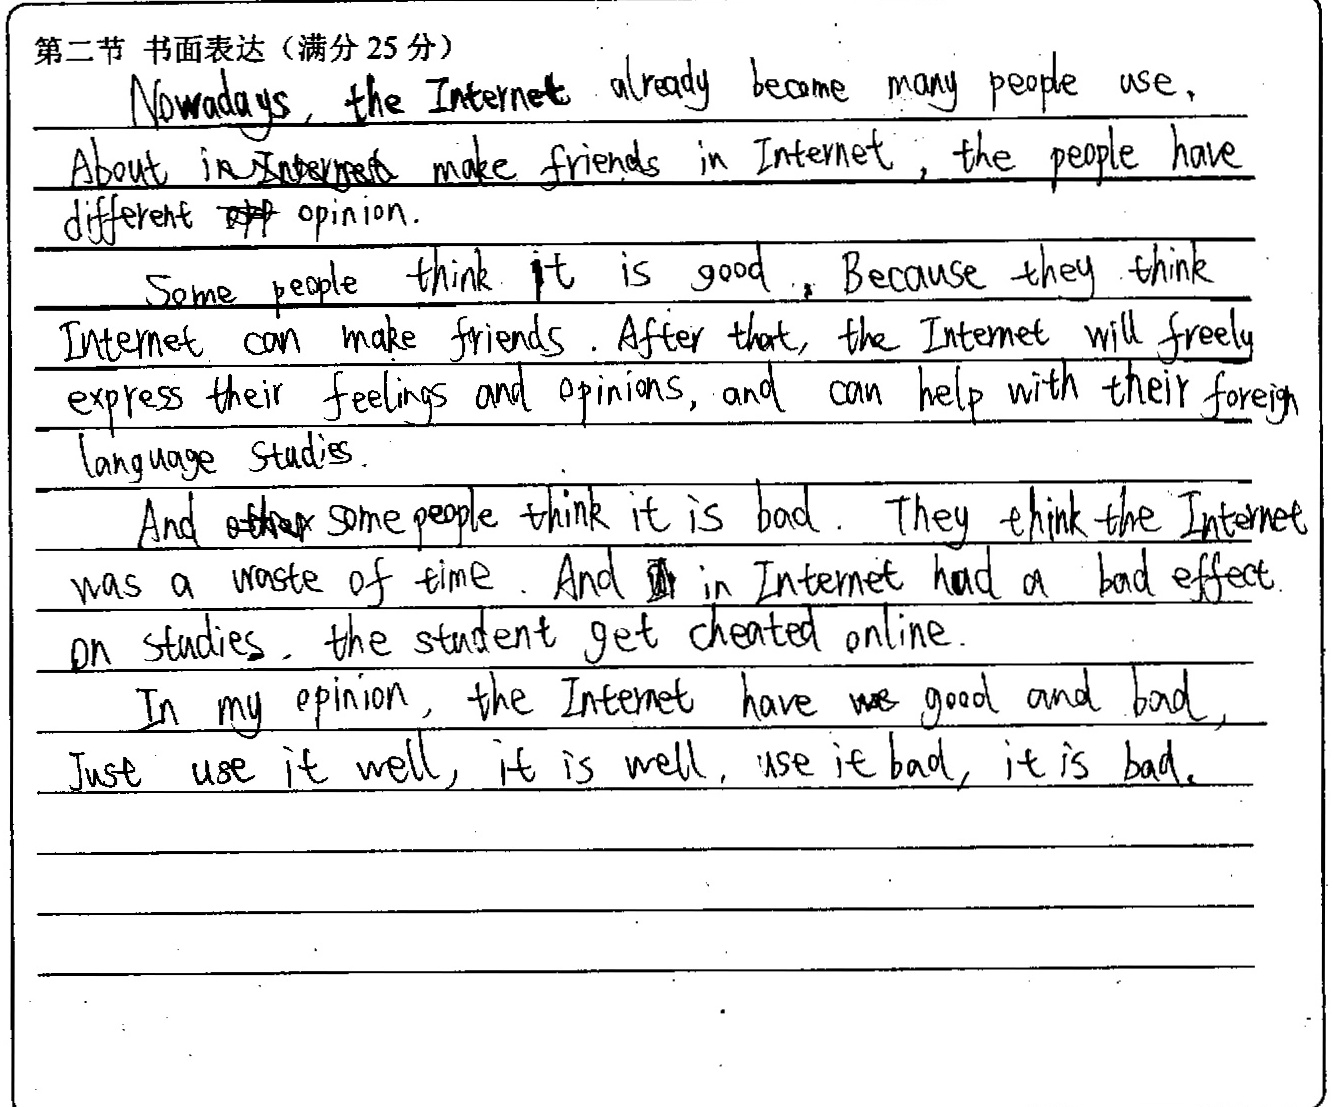 第二节 书面表达（满分 25 分）
Nowadays, the Internet already become many people use.
About in Internet make friends in Internet, the people have
different opinion.
Some people think it is good. Because they think
Internet can make friends. After that, the Internet will freely
express their feelings and opinions, and can help with their foreign
language studies.
And some people think it is bad. They think the Internet
was a waste of time. And in Internet had a bad effect
on studies. the student get cheated online.
In my opinion, the Internet have good and bad,
Just use it well, it is well. use it bad, it is bad.